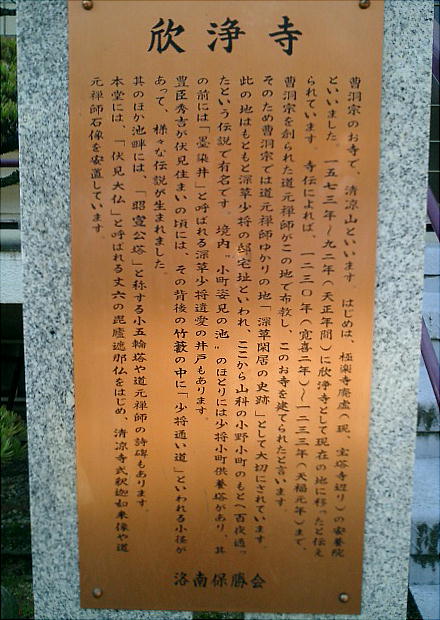 欣浄寺
曹洞宗のお寺で、清凉山といいます。はじめは、極楽寺廃虚(現、宝塔寺辺り)の安養院
といいました。一五七三年〜九二年(天正年間)に欣浄寺として現在の地に移ったと伝え
られています。寺伝によれば、一二三〇年(寛喜二年)〜一二三三年(天福元年)まで、
曹洞宗を創られた道元禅師がこの地で布教し、このお寺を建てられたと言います。
そのため曹洞宗では道元禅師ゆかりの地「深草閑居の史跡」として大切にされています。
此の地はもともと深草少将の邸宅址といわれ、ここから山科の小野小町のもとへ"百夜通っ
たという伝説で有名です。境内"小町姿見の池"のほとりには少将小町供養塔があり、其
の前には「墨染井」と呼ばれる深草少将遺愛の井戸もあります。
豊臣秀吉が伏見住まいの頃には、その背後の竹藪の中に「少将通い道」といわれる小径が
あって、様々な伝説が生まれました。
其のほか池畔には、「昭宣公塔」と称する小五輪塔や道元禅師の詩碑もあります。
本堂には、「伏見大仏」と呼ばれる丈六の毘盧遮那仏をはじめ、清凉寺式釈迦如来像や道
元禅師石像を安置しています
洛南保勝会